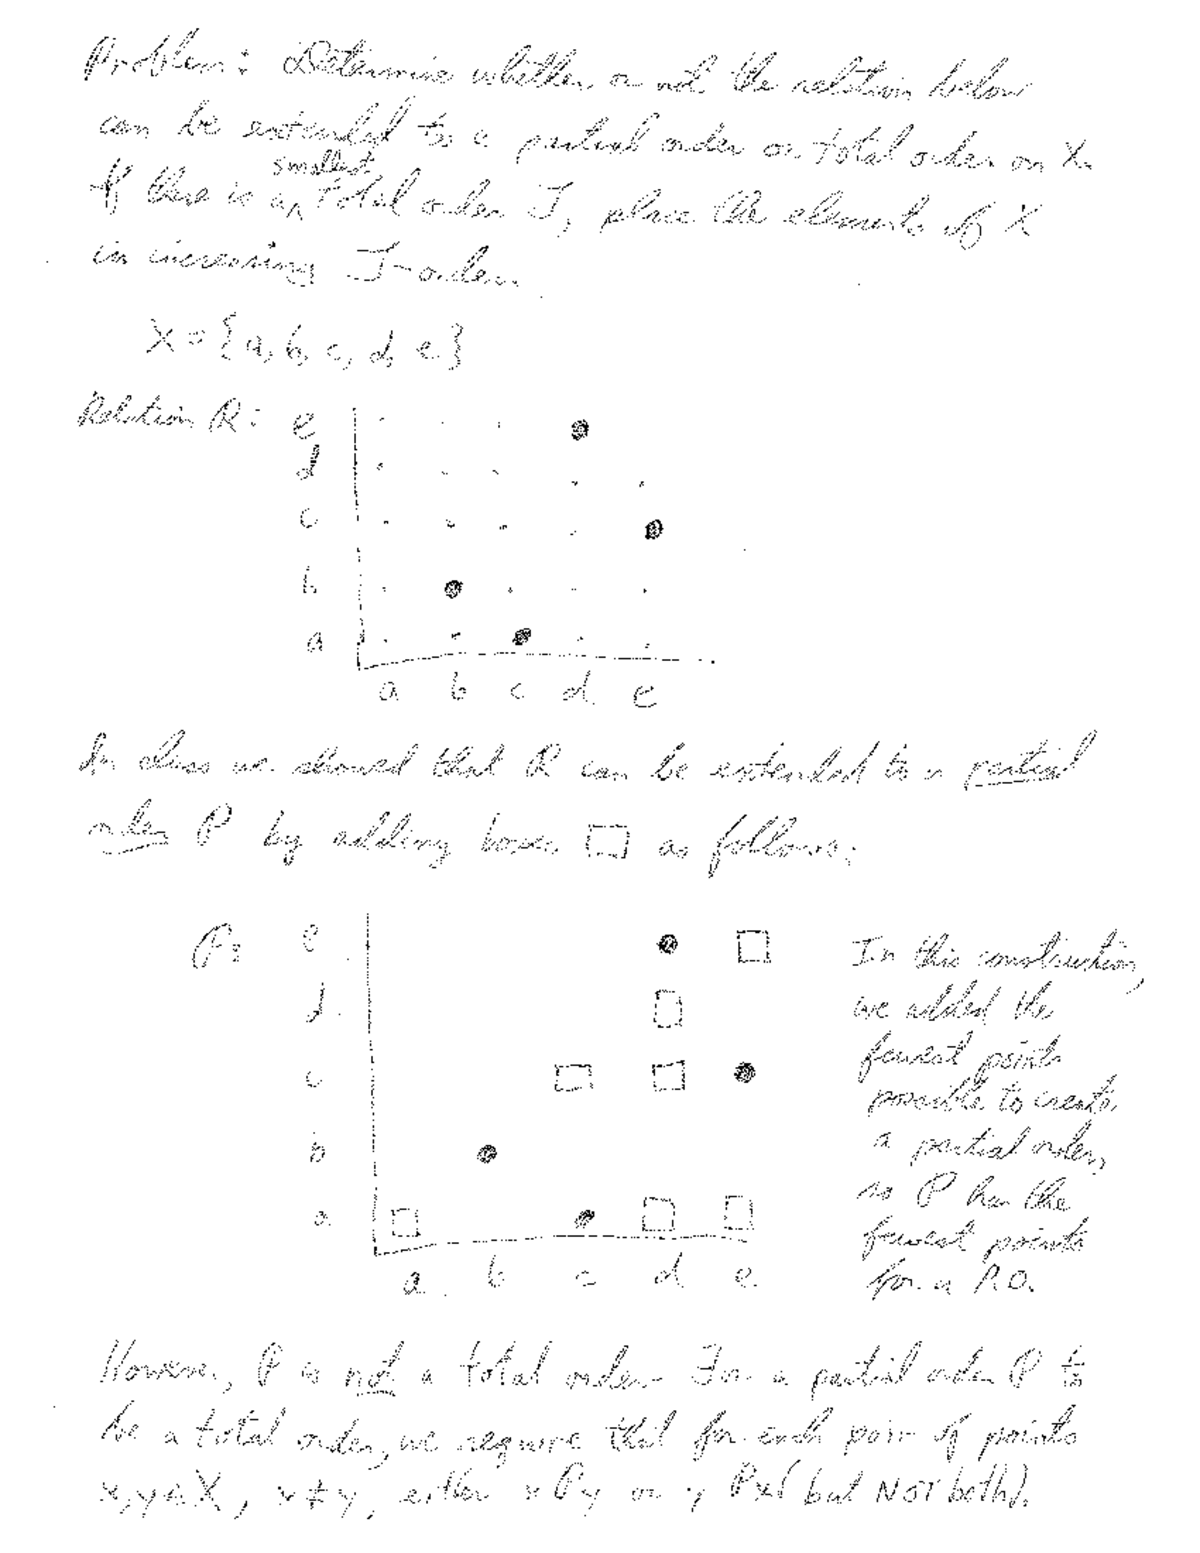 Problem: Determine whether or not the relation below
can be extended to a partial order or total order on X.
smallest
If there is a total order T, place the elements of X
in increasing T-order.
X = {a, b, c, d, e}
Relation R: e
d
c
b
a
a b c d e
In class we showed that R can be extended to a partial
order P by adding boxes □ as follows:
P: e
d
c
b
a
a b c d e
In this construction,
we added the
fewest points
possible to create
a partial order,
so P has the
fewest points
for a P.O.
However, P is not a total order. For a partial order P to
be a total order, we require that for each pair of points
x, y ∈ X, x ≠ y, either x P y or y P x (but NOT both).